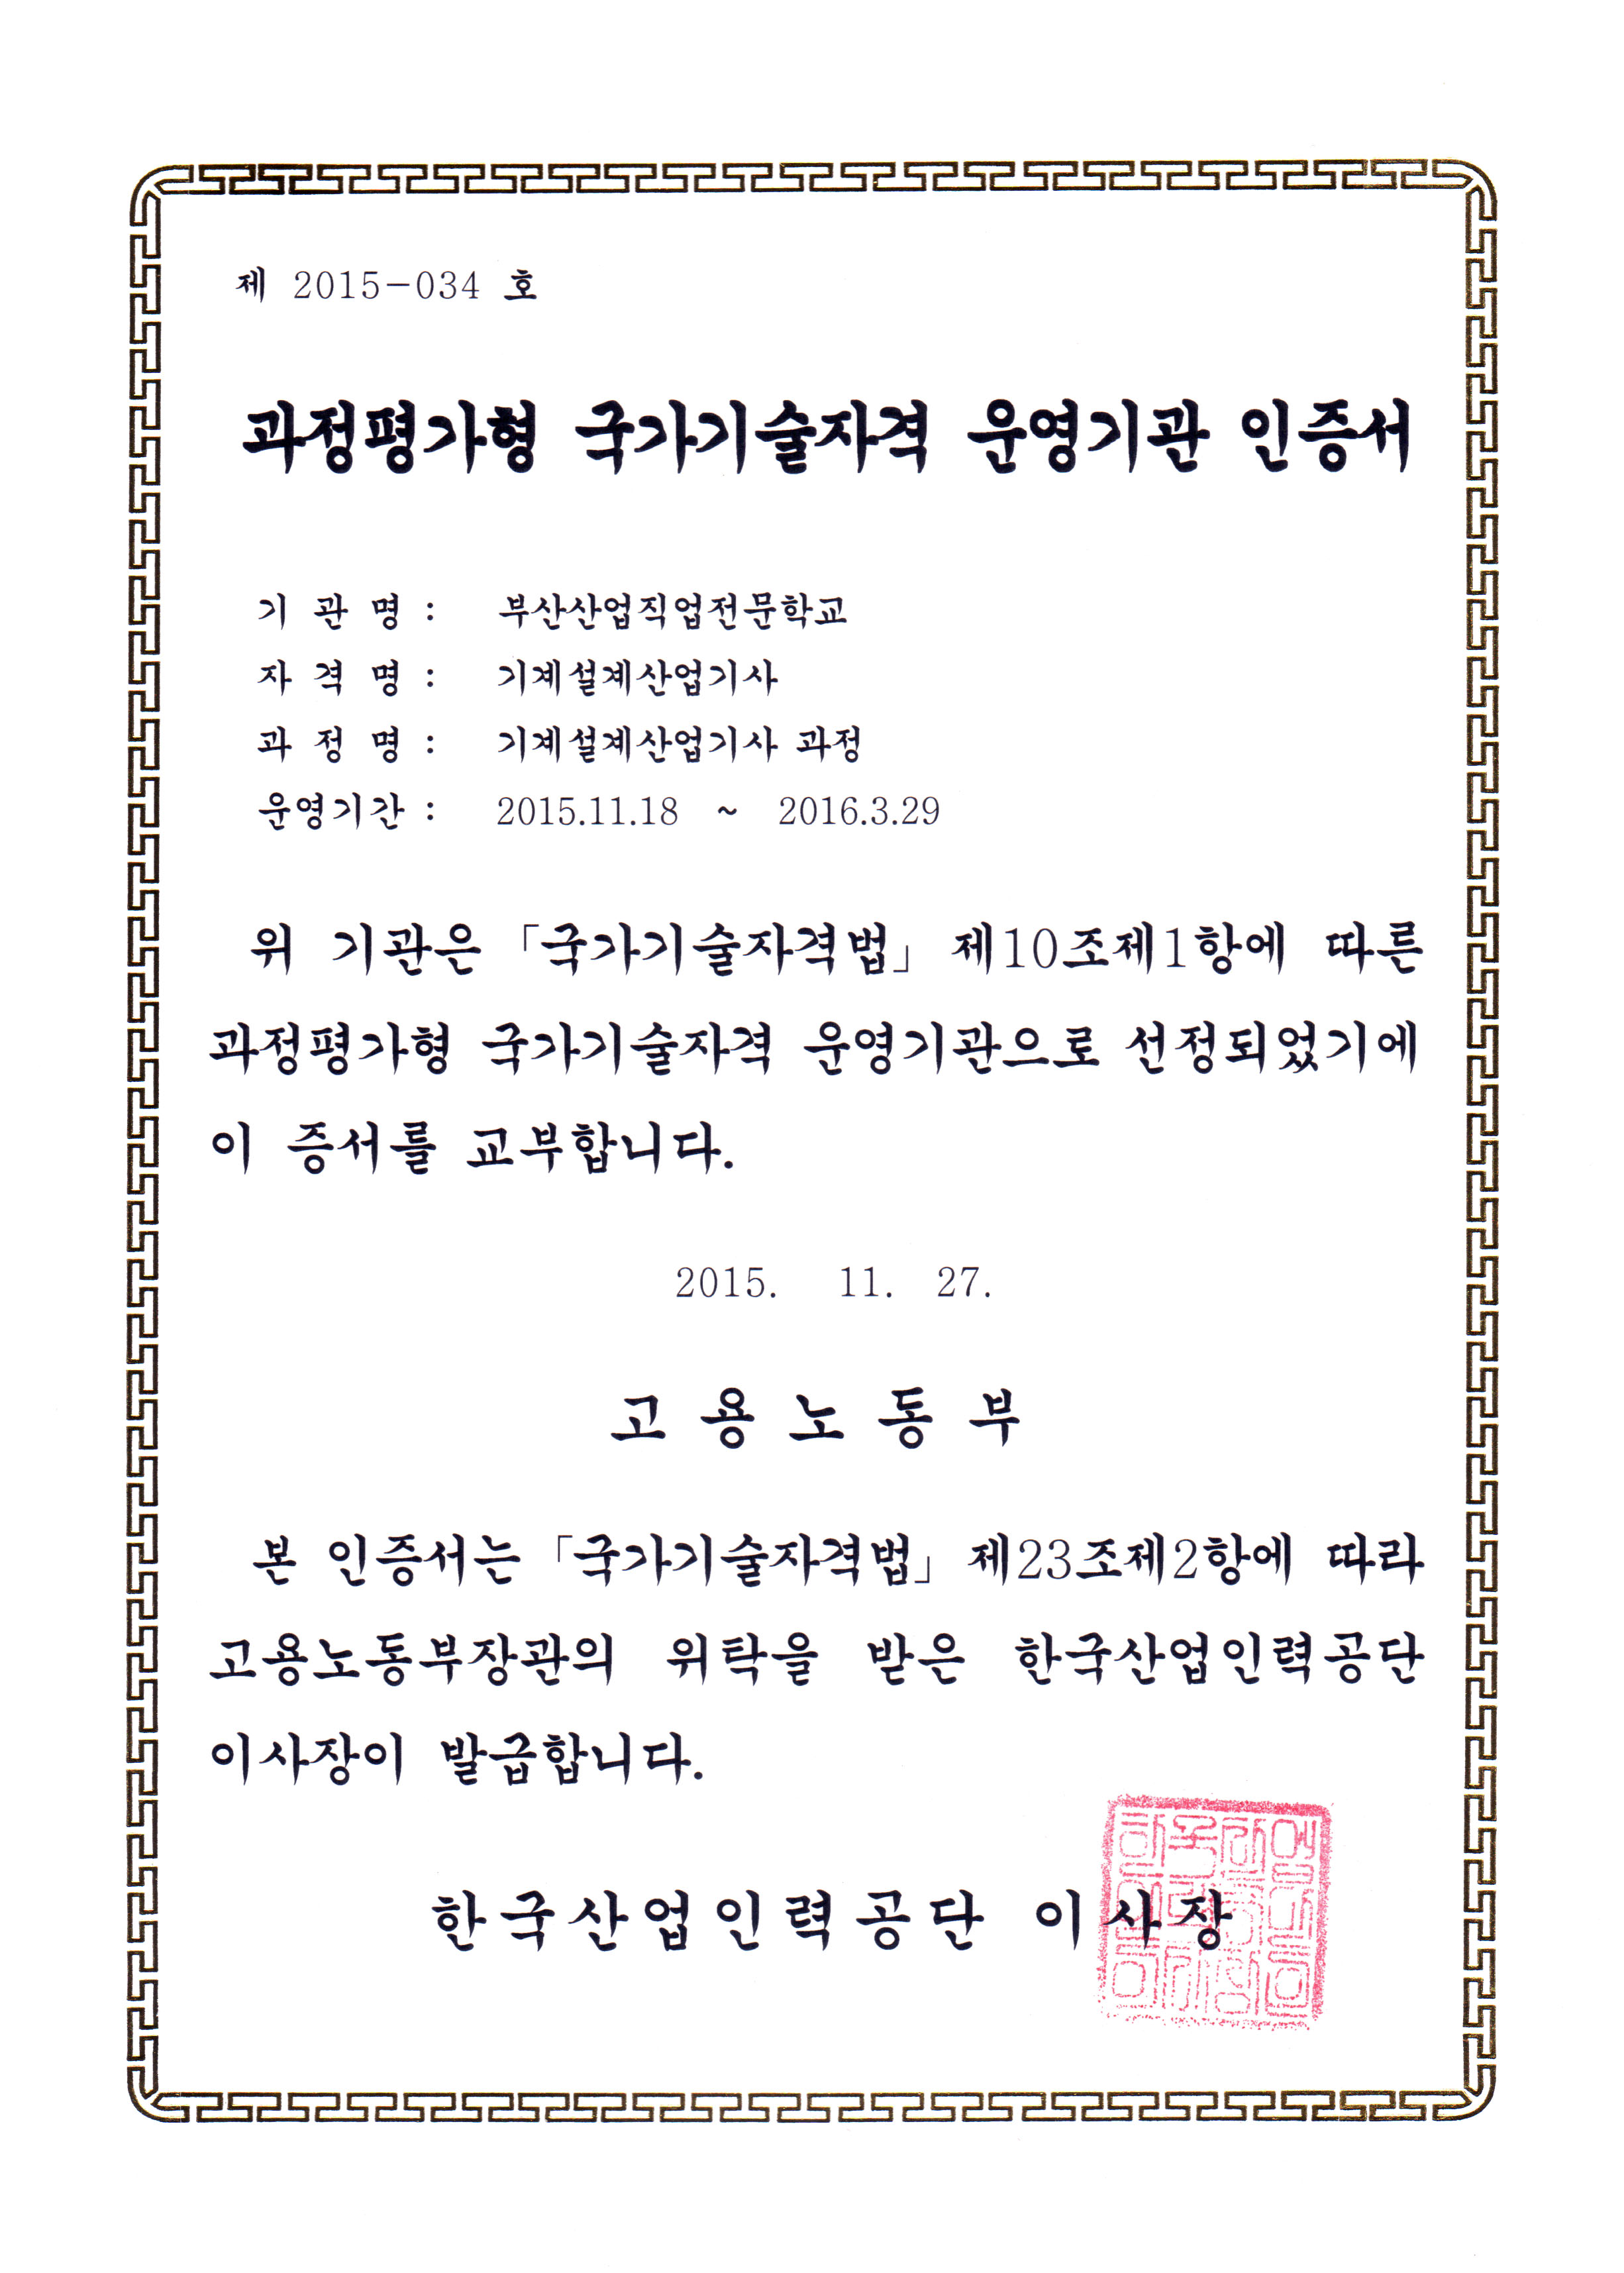 제 2015-034 호
과정평가형 국가기술자격 운영기관 인증서
기 관 명 : 부산산업직업전문학교
자 격 명 : 기계설계산업기사
과 정 명 : 기계설계산업기사 과정
운영기간 : 2015.11.18 ~ 2016.3.29
위 기관은 「국가기술자격법」 제10조제1항에 따른
과정평가형 국가기술자격 운영기관으로 선정되었기에
이 증서를 교부합니다.
2015. 11. 27.
고 용 노 동 부
본 인증서는 「국가기술자격법」 제23조제2항에 따라
고용노동부장관의 위탁을 받은 한국산업인력공단
이사장이 발급합니다.
한국산업인력공단 이사장